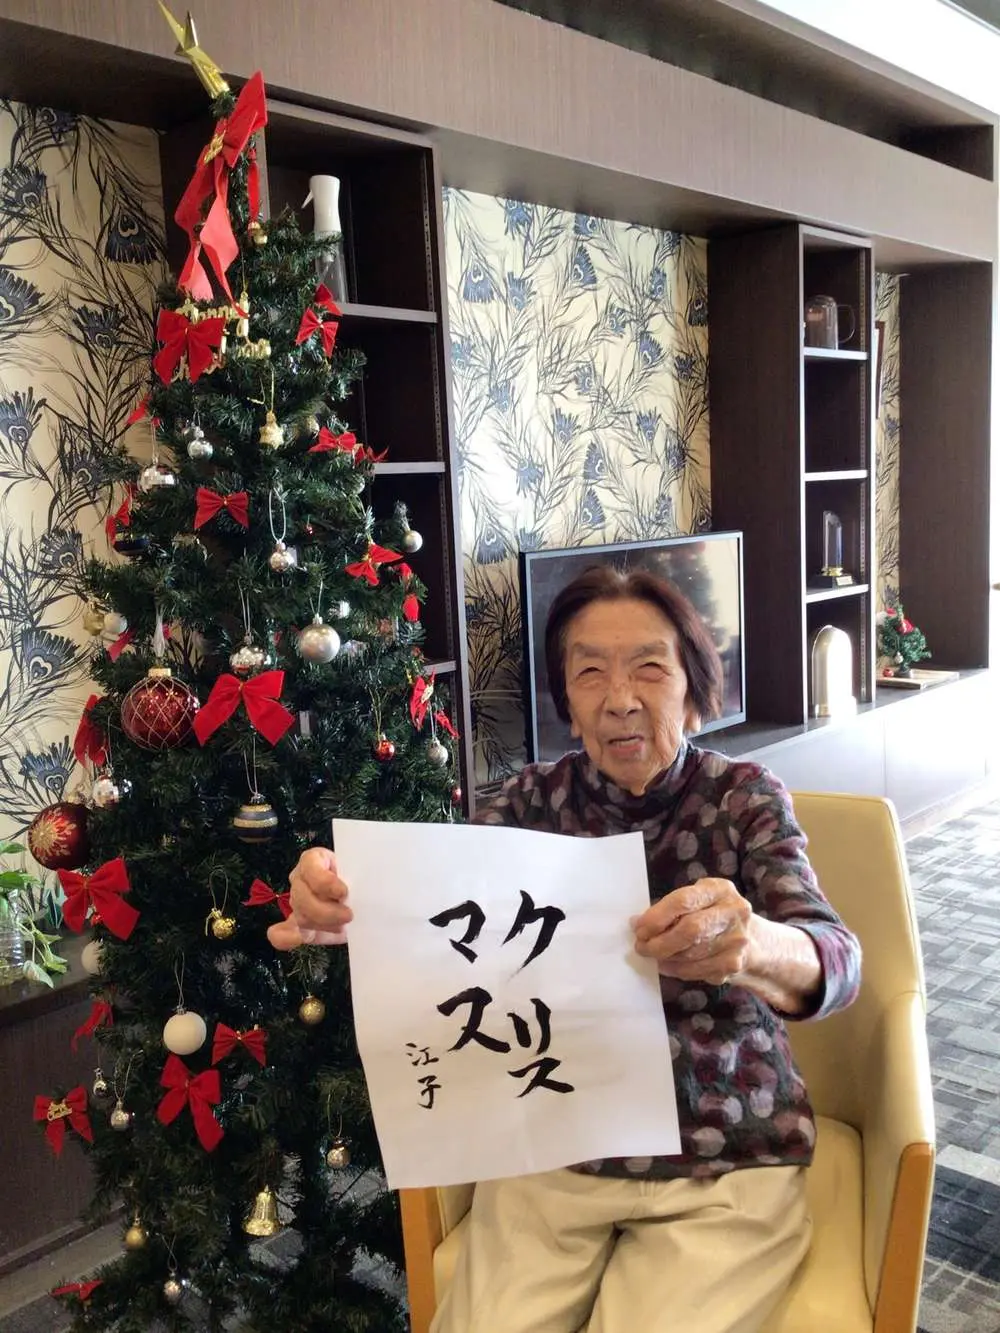 クリス
マス
江子